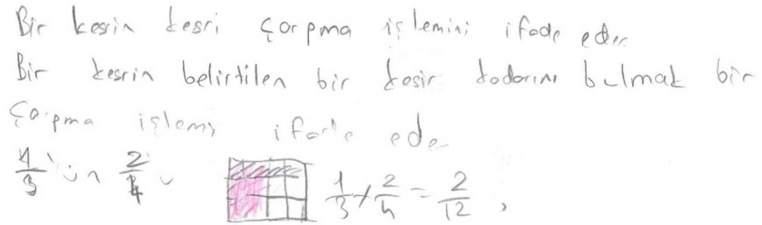 Bir kesrin kesri çarpma işlemini ifade eder.
Bir kesrin belirtilen bir kesir kadarını bulmak bir
çarpma işlemi ifade eder
1/3 'ün 2/4 ü 1/3 x 2/4 = 2/12 ,